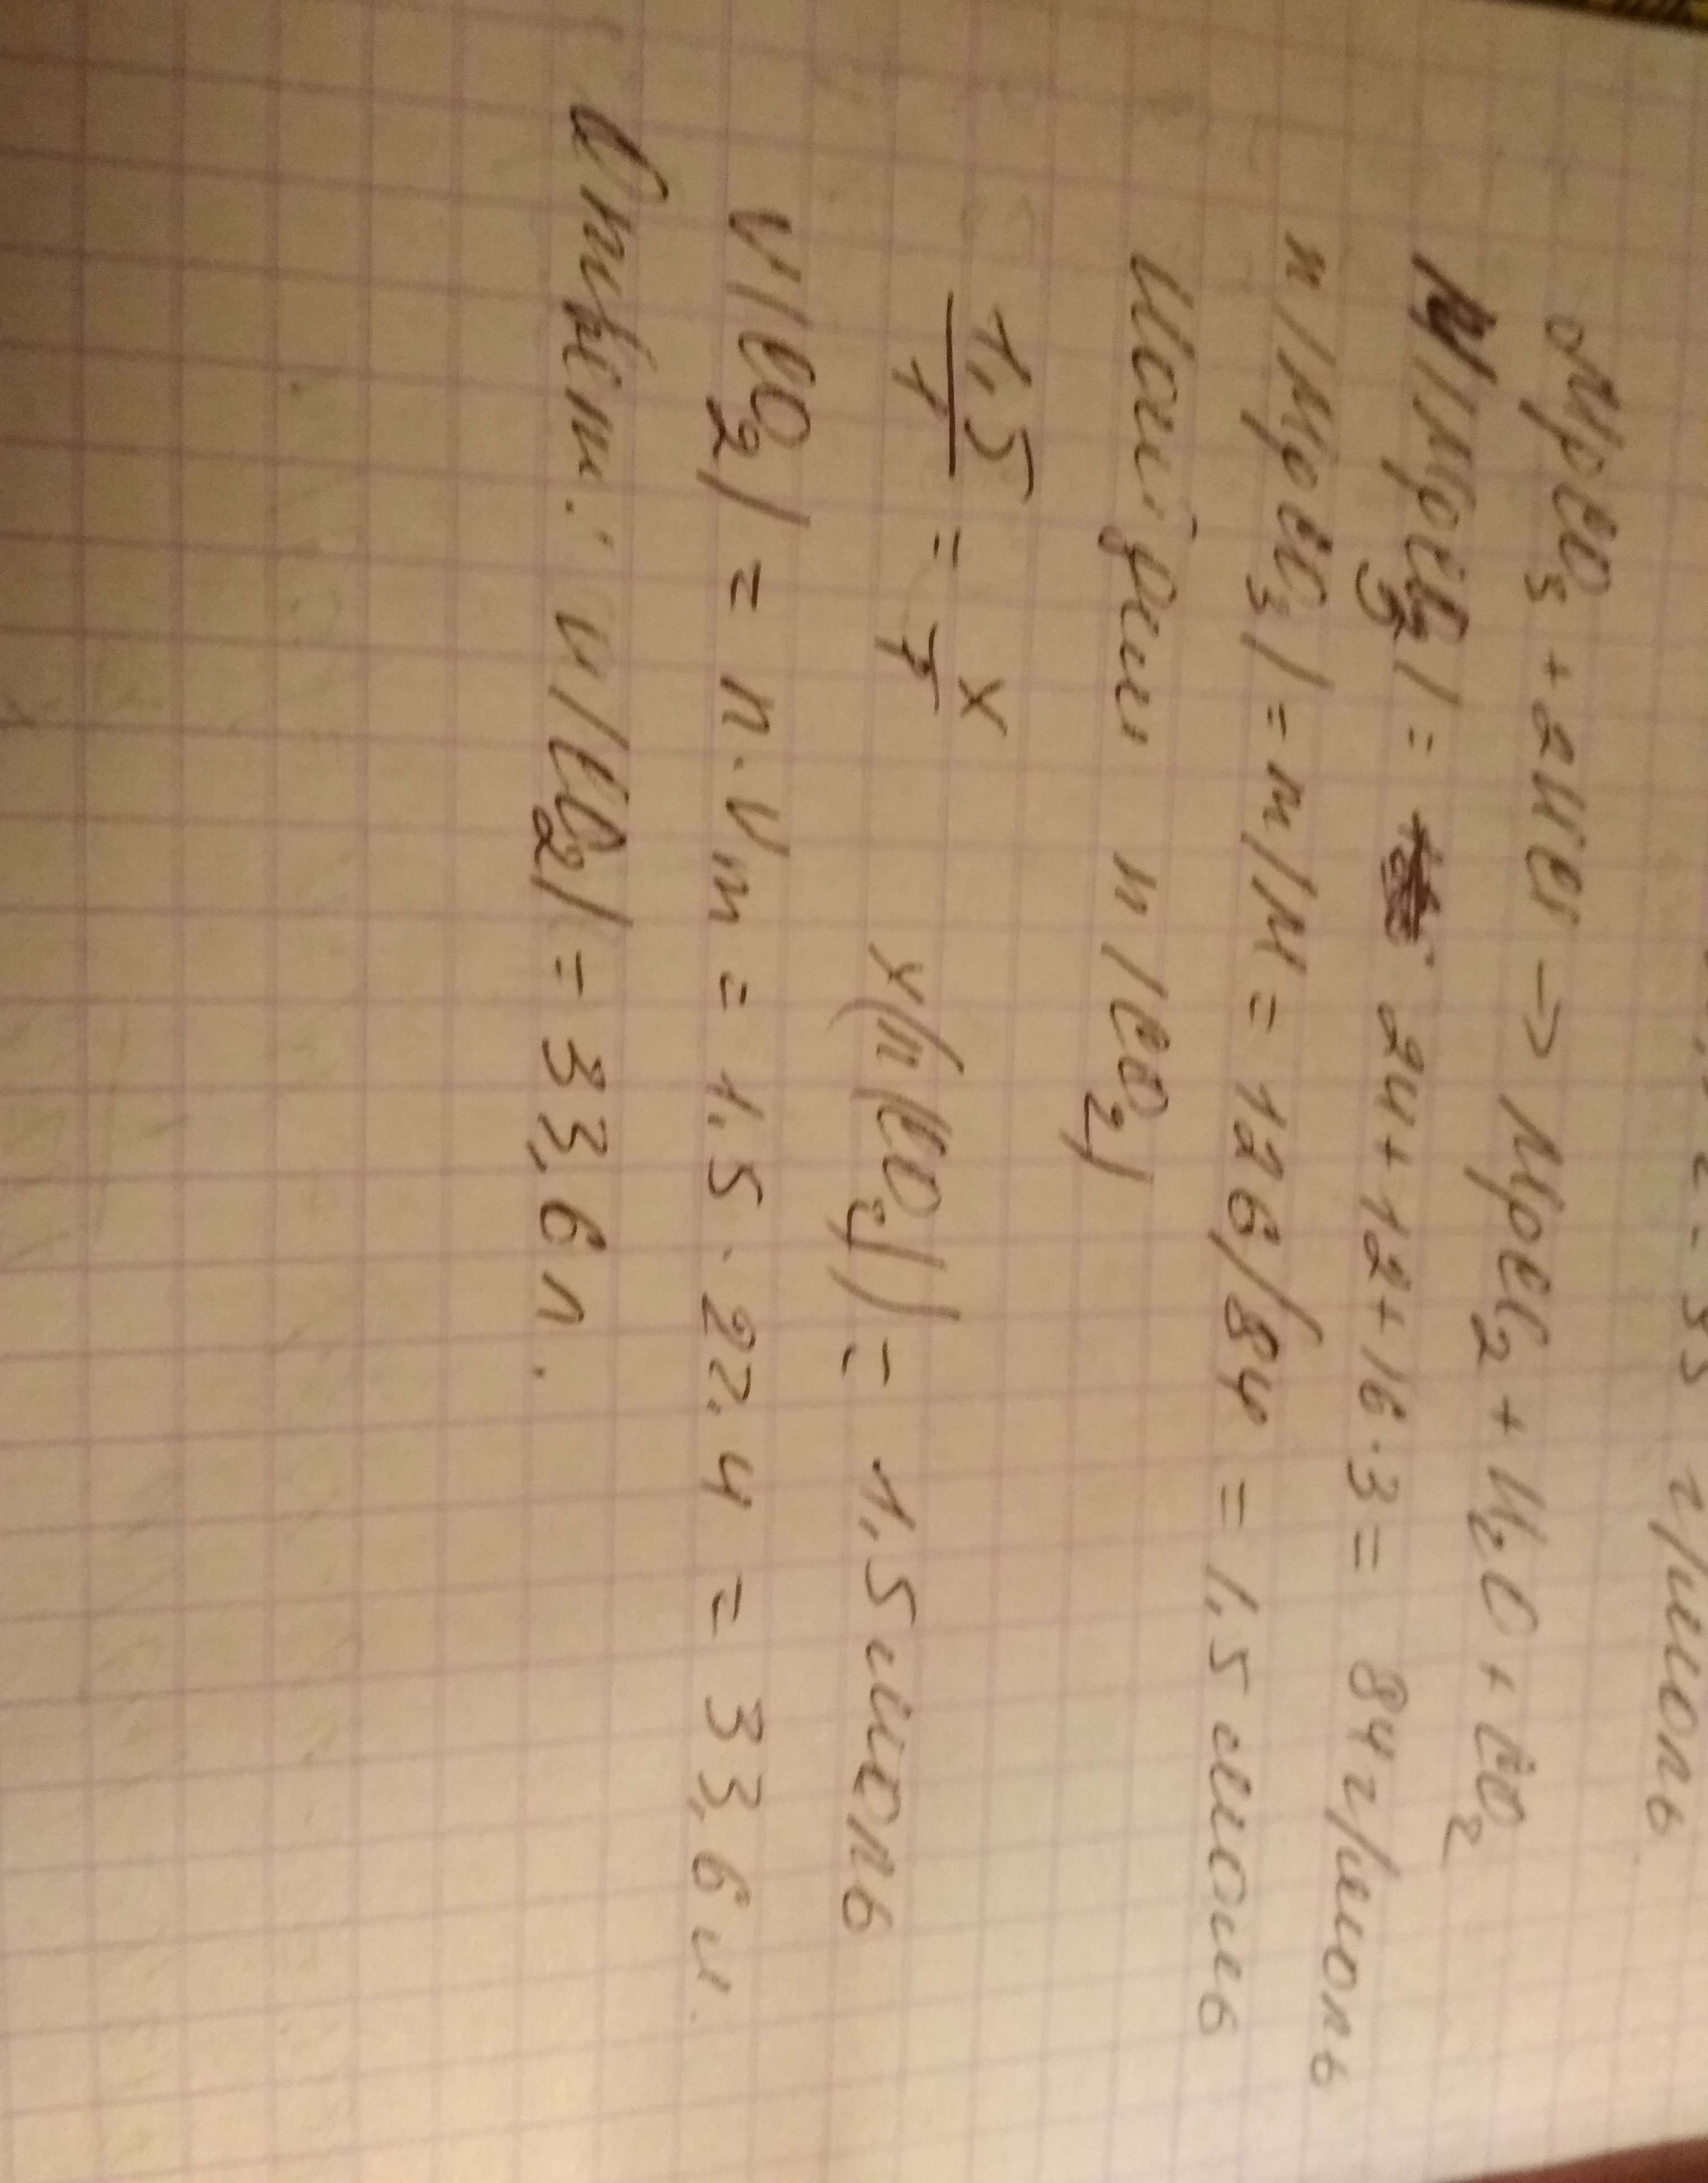 г/моль
MgCO₃ + 2HCl → MgCl₂ + H₂O + CO₂
M(MgCO₃) = 24+12+16·3 = 84 г/моль
n(MgCO₃) = m/M = 126/84 = 1,5 моль
n(CO₂)
1,5/1 = x/1 x(n(CO₂)) = 1,5 моль
V(CO₂) = n·Vm = 1,5 · 22,4 = 33,6 л.
Ответ: V(CO₂) = 33,6 л.